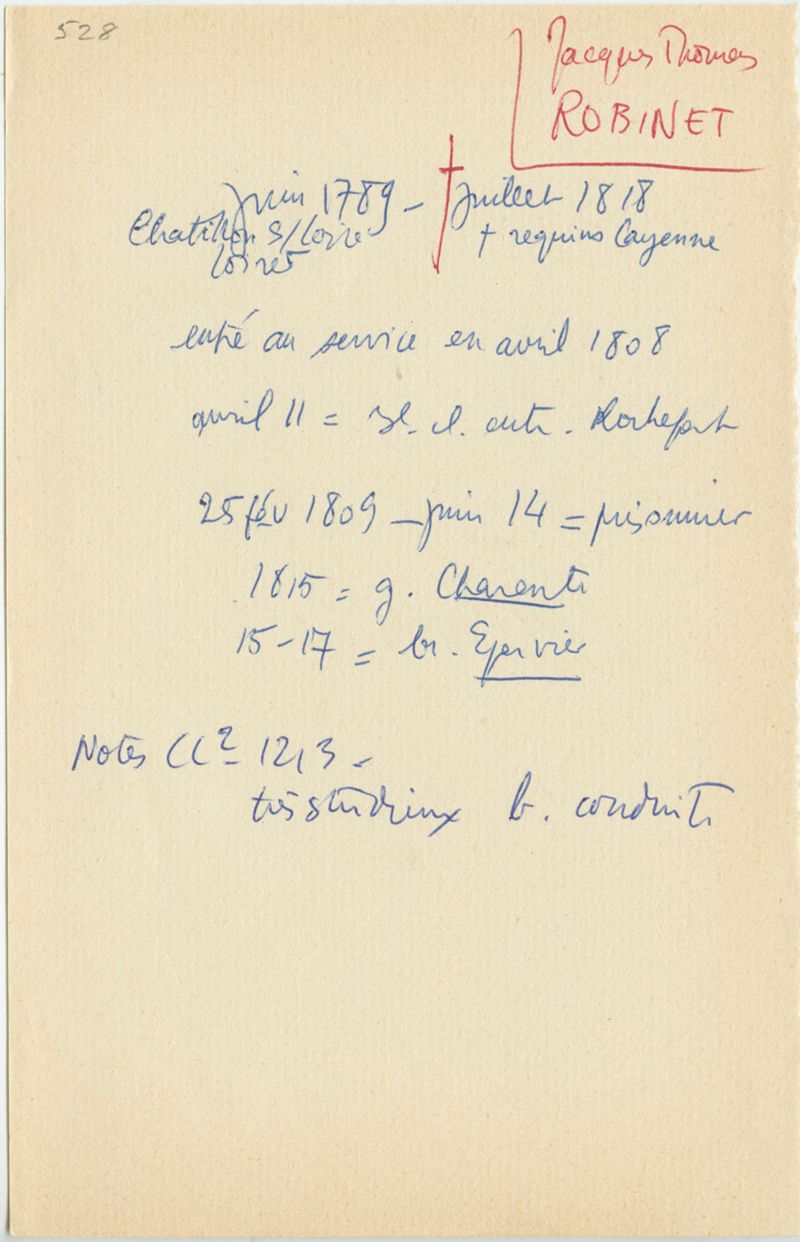 528
Jacques Thomas
ROBINET
juin 1789 – † juillet 1818
Chatillon s/Loire † requins Cayenne
Loiret
entré au service en avril 1808
avril 11 = Rochefort
25 fév 1809 – juin 14 = prisonnier
1815 = g. Charente
15-17 = br. Epervier
Notes CC² 12,3 –
très studieux b. conduite